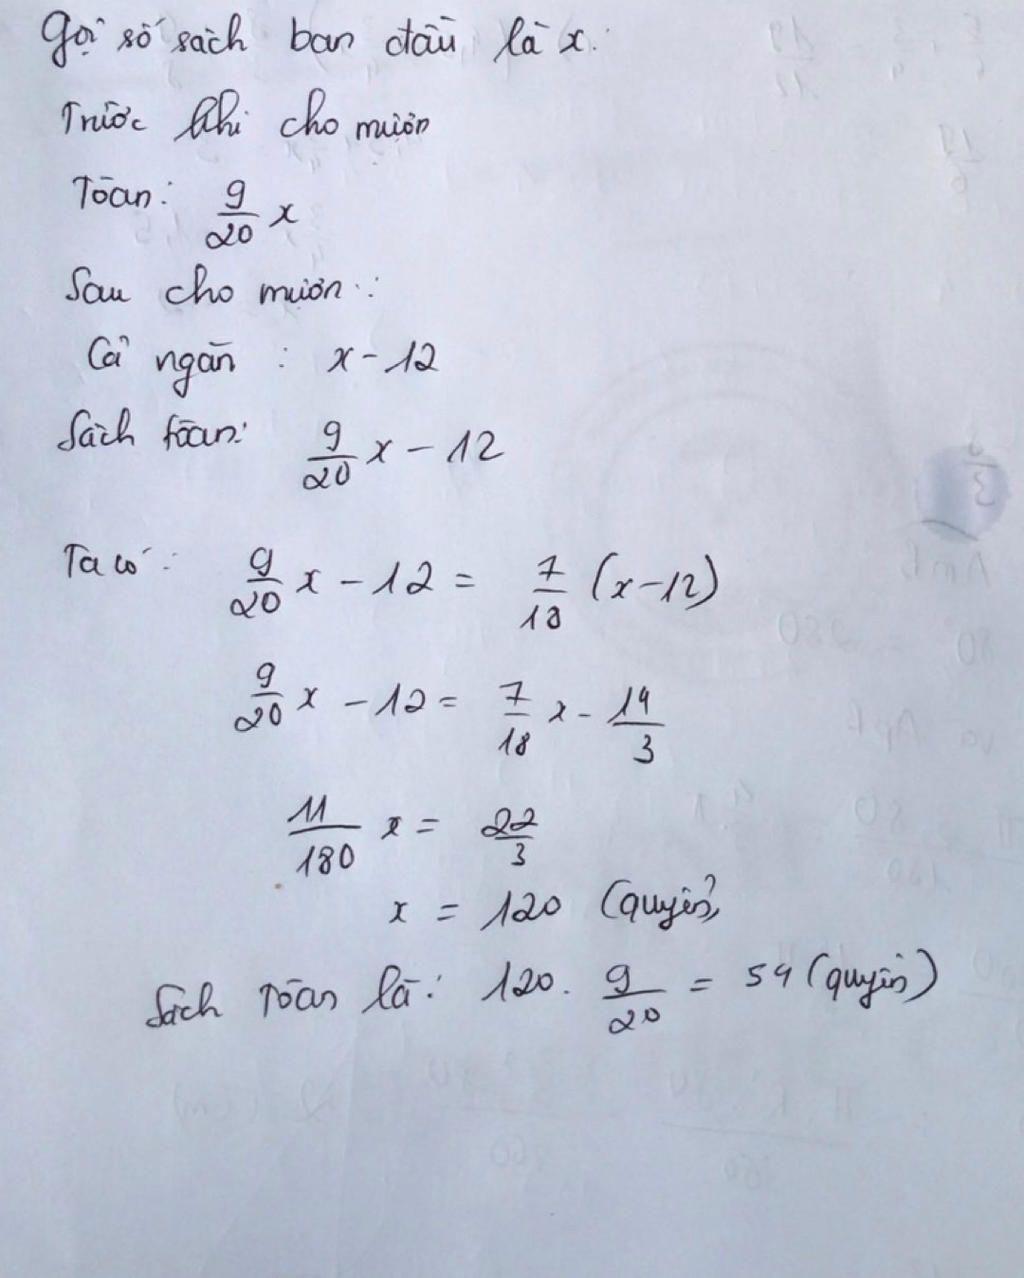 Gọi số sách ban đầu là x.
Trước khi cho mượn
Toán: 9/20 x
Sau cho mượn:
Cả ngăn : x - 12
Sách toán: 9/20 x - 12
Ta có: 9/20 x - 12 = 7/18 (x - 12)
9/20 x - 12 = 7/18 x - 14/3
11/180 x = 22/3
x = 120 (quyển)
Sách Toán là: 120 . 9/20 = 54 (quyển)